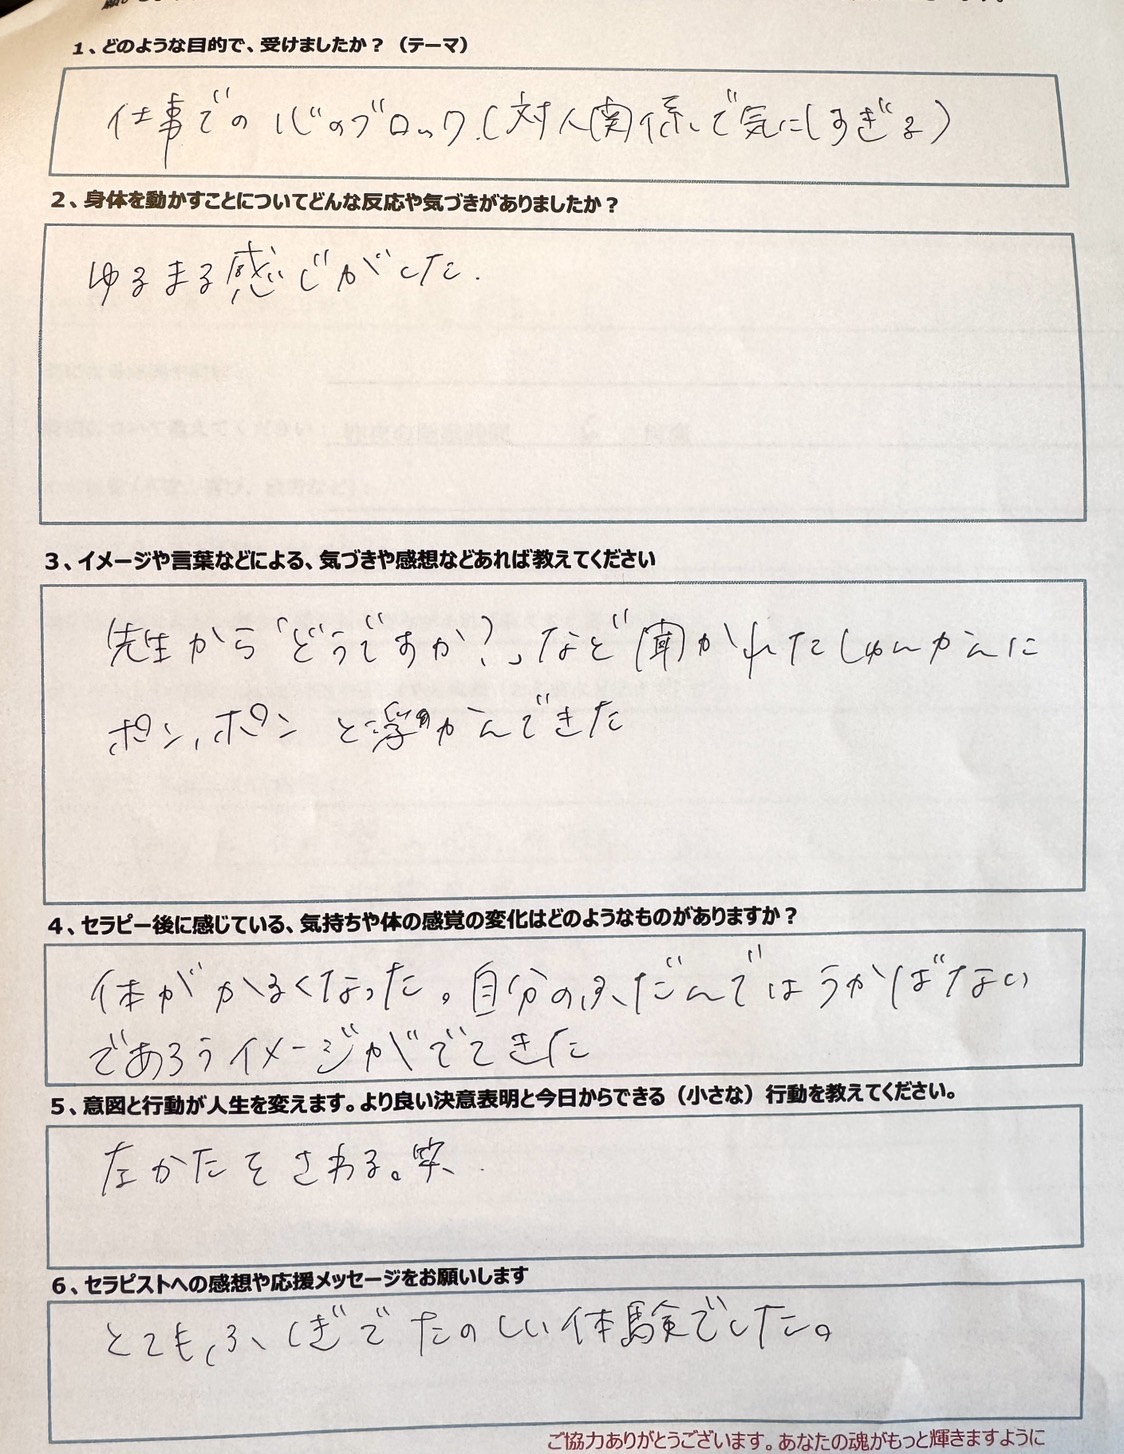 1、どのような目的で、受けましたか？（テーマ）
仕事での心のブロック.(対人関係で気にしすぎる)
2、身体を動かすことについてどんな反応や気づきがありましたか？
ゆるまる感じがした.
3、イメージや言葉などによる、気づきや感想などあれば教えてください
先生から「どうですか?」など聞かれたしゅんかんに
ポン,ポンと浮かんできた
4、セラピー後に感じている、気持ちや体の感覚の変化はどのようなものがありますか？
体がかるくなった。自分のふだんではうかばない
であろうイメージがでてきた
5、意図と行動が人生を変えます。より良い決意表明と今日からできる（小さな）行動を教えてください。
左かたをさわる。笑.
6、セラピストへの感想や応援メッセージをお願いします
とてもふしぎでたのしい体験でした。
ご協力ありがとうございます。あなたの魂がもっと輝きますように